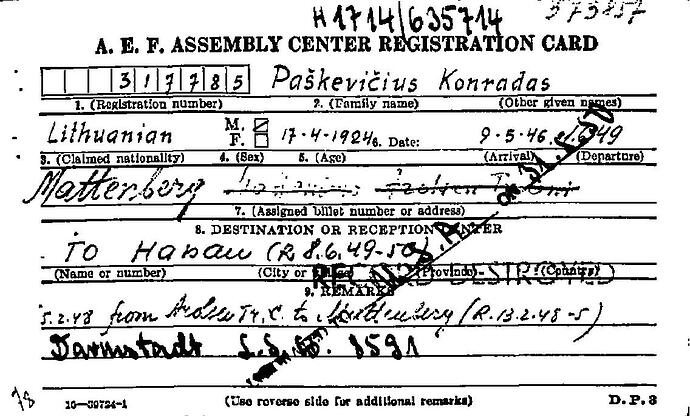 H1714/635714 373857
A. E. F. ASSEMBLY CENTER REGISTRATION CARD
317785 Paškevičius Konradas
1. (Registration number) 2. (Family name) (Other given names)
Lithuanian M. F. 17-4-1924 6. Date: 9-5-46 49
3. (Claimed nationality) 4. (Sex) 5. (Age) (Arrival) (Departure)
Mattenberg
7. (Assigned billet number or address)
8. DESTINATION OR RECEPTION CENTER
TO Hanau (R 8.6.49-50)
(Name or number) (City or (Province) (Country)
RECORD DESTROYED
U.S.A. ON
9. REMARKS
5.2.48 from to Mattenberg (R. 13.2.48-5)
Darmstadt 8591
78 16-39724-1 (Use reverse side for additional remarks) D.P. 3